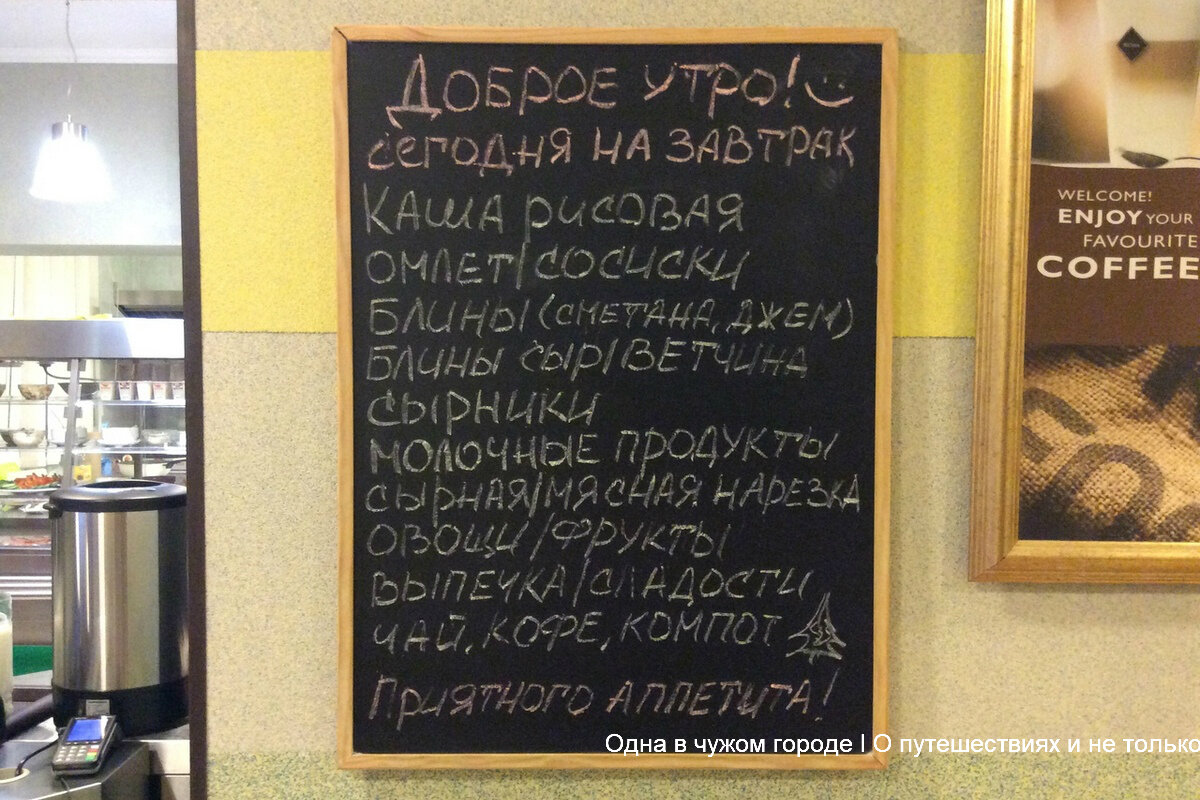 ДОБРОЕ УТРО!
СЕГОДНЯ НА ЗАВТРАК
КАША РИСОВАЯ
ОМЛЕТ/СОСИСКИ
БЛИНЫ (СМЕТАНА, ДЖЕМ)
БЛИНЫ СЫР/ВЕТЧИНА
СЫРНИКИ
МОЛОЧНЫЕ ПРОДУКТЫ
СЫРНАЯ/МЯСНАЯ НАРЕЗКА
ОВОЩИ/ФРУКТЫ
ВЫПЕЧКА/СЛАДОСТИ
ЧАЙ, КОФЕ, КОМПОТ
ПРИЯТНОГО АППЕТИТА!
WELCOME!
ENJOY YOUR
FAVOURITE
COFFEE
Одна в чужом городе | О путешествиях и не только